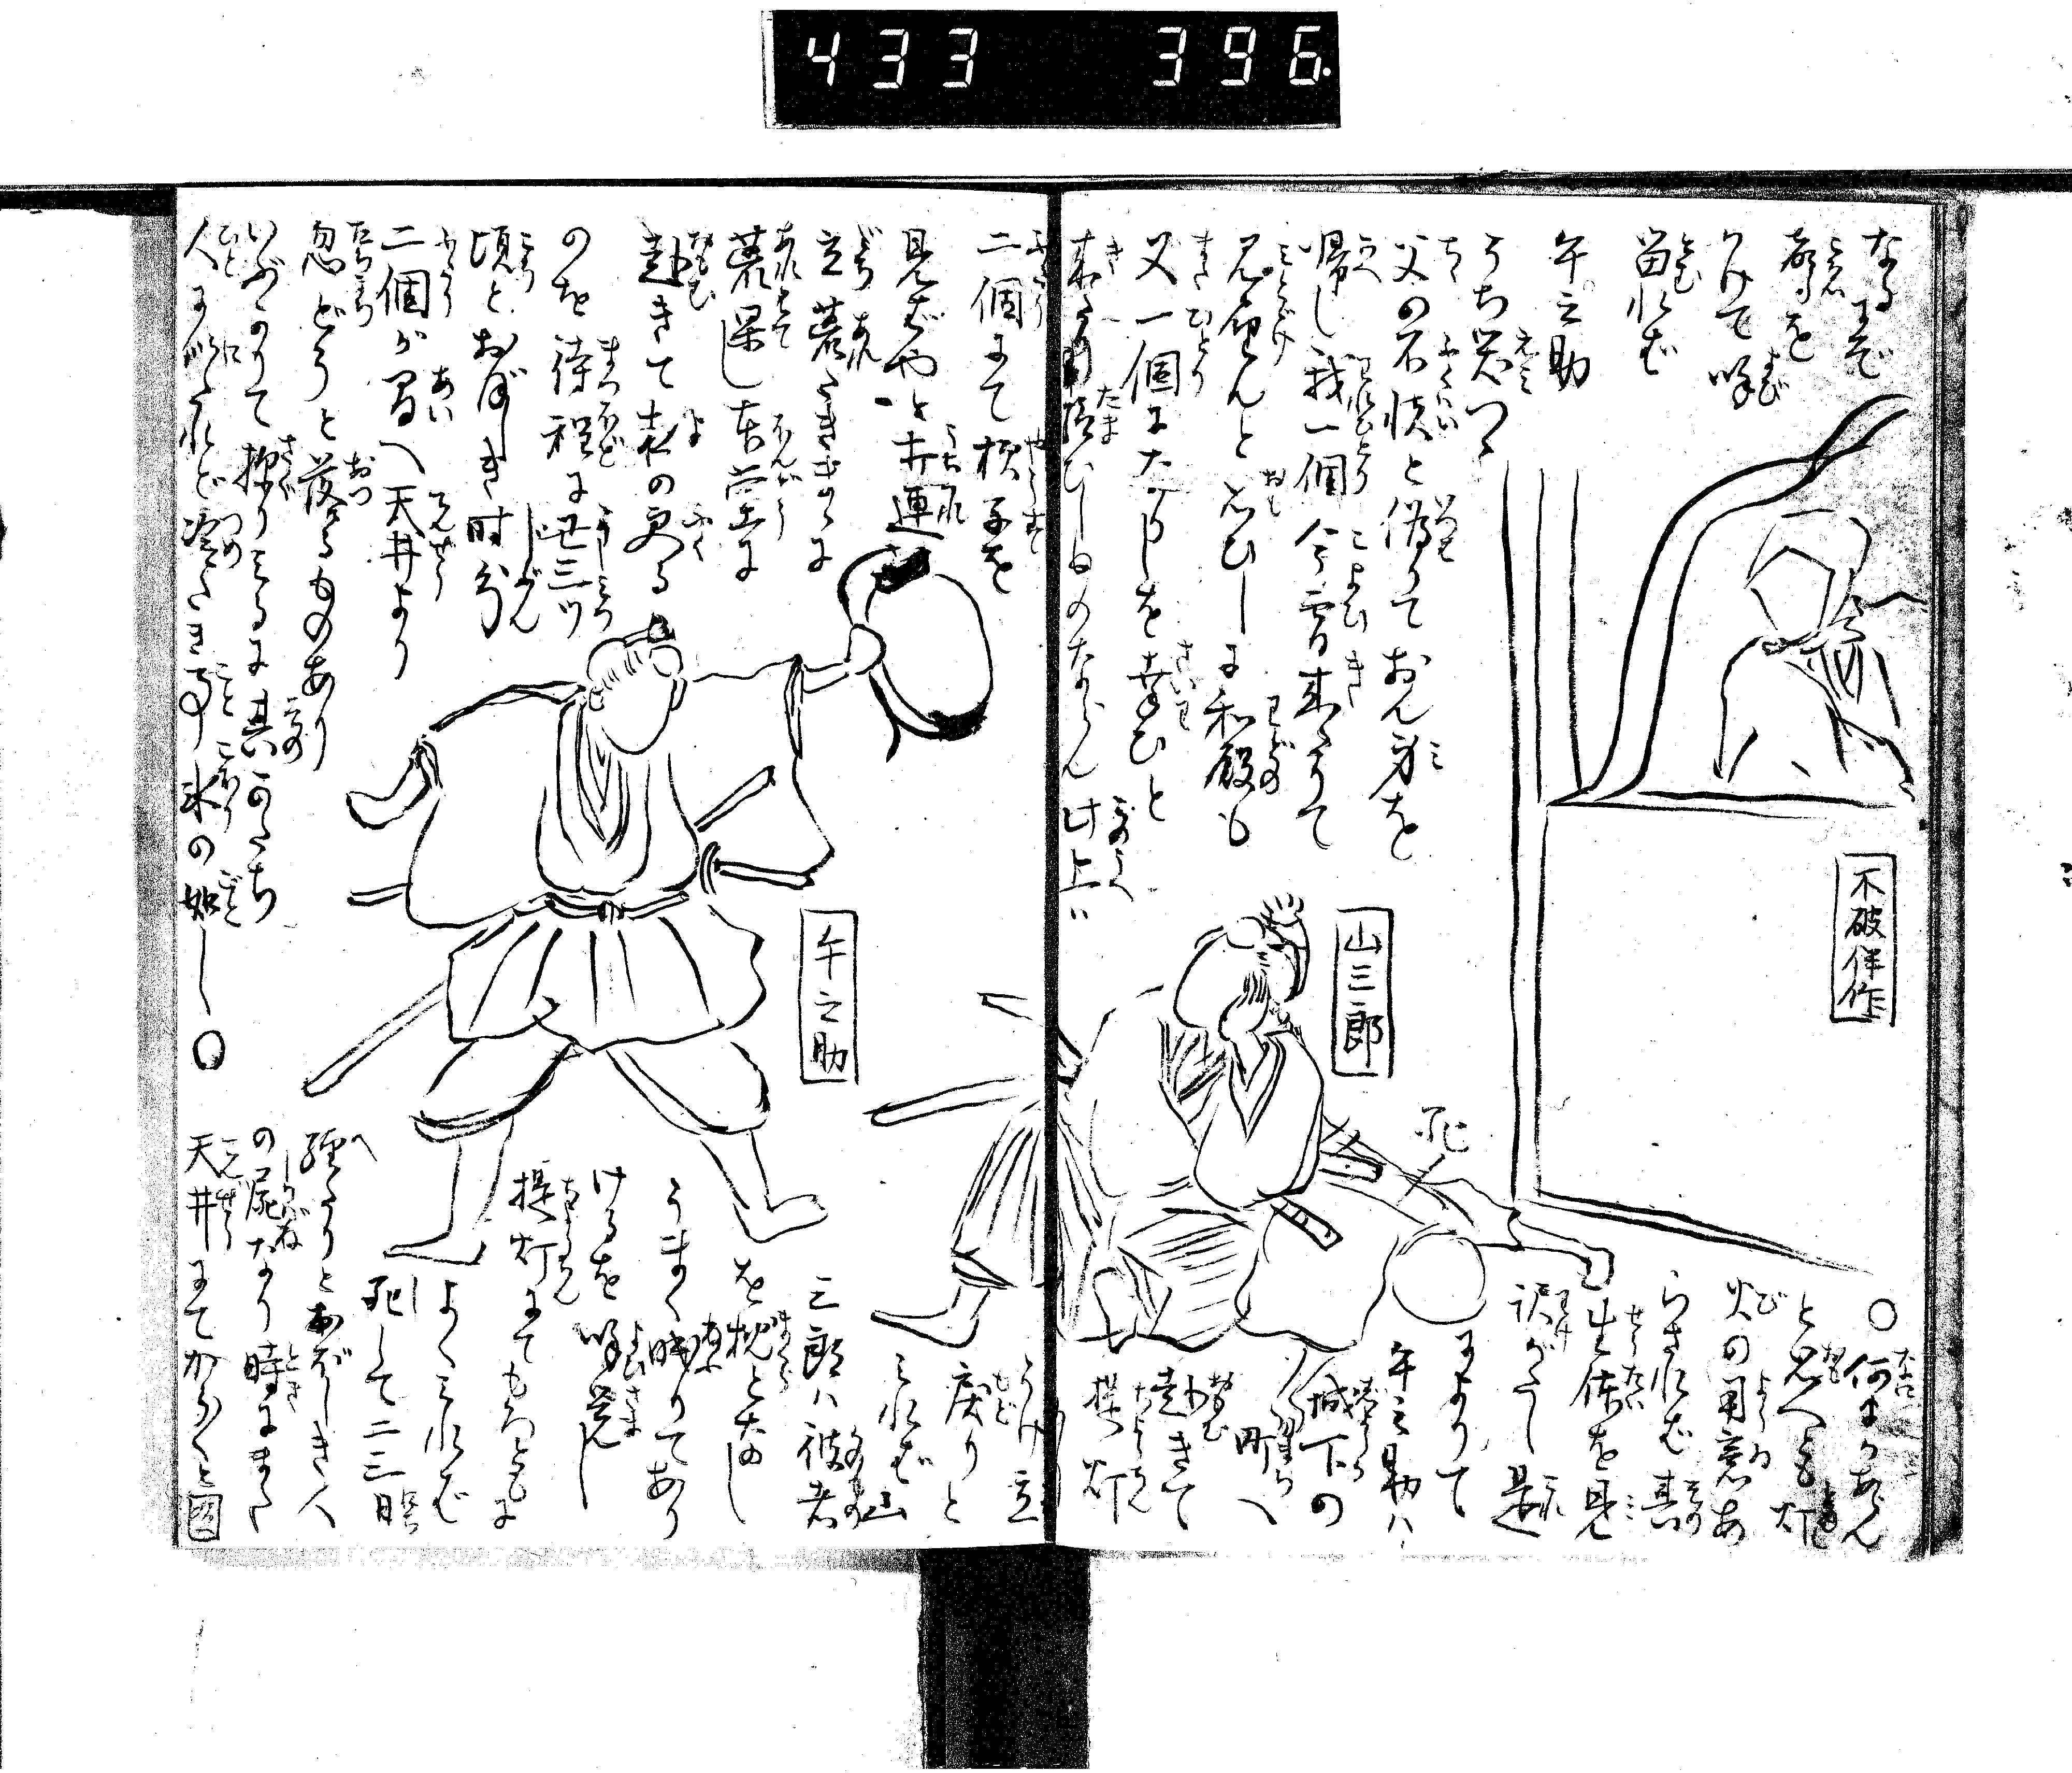 433 396
なるまで
声を
かけて呼
留れば
午之助
うち笑つゝ
父の不快と偽りておん身を
帰し我一個今宵来りて
見届んと思ひしに和殿も
又一個になりしを幸ひと
此上は
二個にて様子を
見ばやと打連
立荒
荒果し本堂に
赴きて夜の更る
のを待程に丑三ツ
頃とおぼしき時分
二個が間へ天井より
忽どうと落るものあり
いぶかりて探りみるに其かたち
人に似たれど冷たき事氷の如し○
不破伴作
山三郎
午之助
○何にかあらん
と思へども灯
火の用意あ
らざれば其
生体を見
訳がたし是
によりて
午之助ハ
城下の
町へ
赴きて
提灯
戻りと
みれば山
三郎ハ彼者
を枕となし
うまく睡りてあり
けるを呼覚し
提灯にてもろともに
よくみれば
死して二三日
経たりとおぼしき人
の屍なり時にまた
天井にてからからと